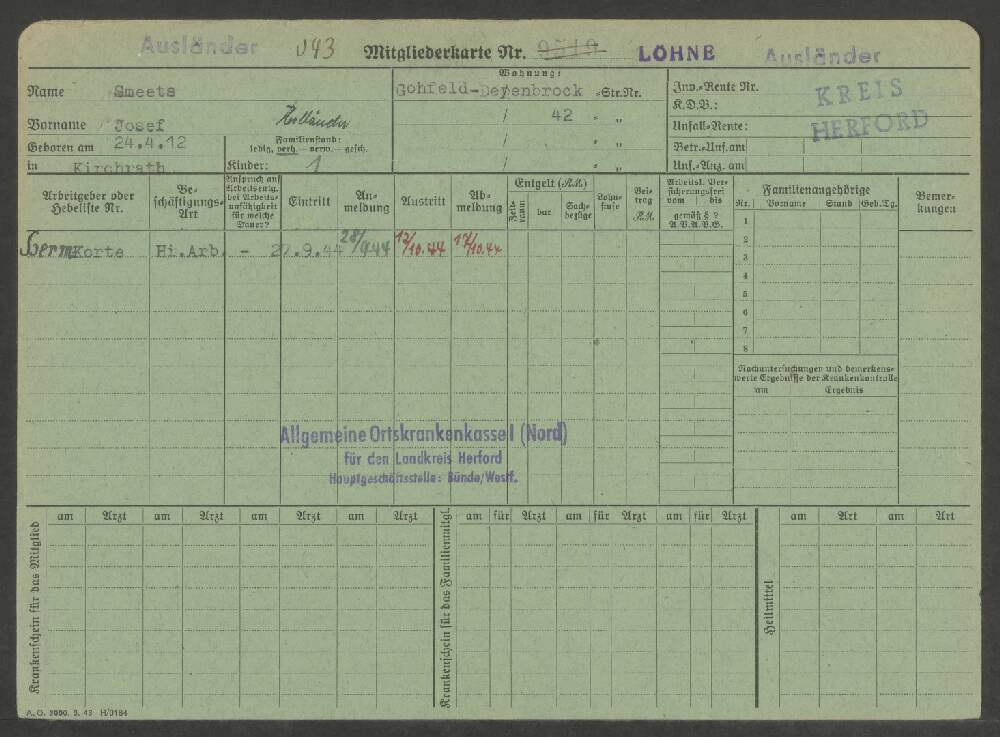 Ausländer 043 Mitgliederkarte Nr. LÖHNE Ausländer
Wohnung:
Name Smeets Gohfeld-Depenbrock -Str.Nr. Inv.-Rente Nr. KREIS
Holländer / 42 - „ K.D.B.:
Vorname Josef Unfall-Rente: HERFORD
Geboren am 24.4.12 Familienstand: / - „ Betr.-Unf. am
ledig, verh. – verw. – gesch.
in Kirchrath Kinder: 1 / - „ Unf.-Anz. am
Arbeitgeber oder Hebeliste Nr.
Beschäftigungs-Art
Anspruch auf Arbeitsentg. bei Arbeitsunfähigkeit für welche Dauer?
Eintritt
Anmeldung
Austritt
Abmeldung
Entgelt (RM)
Zeitraum
bar
Sachbezüge
Lohnstufe
Beitrag RM
Arbeitsl. Versicherungsfrei
vom bis
gemäß § ?
A.V.A.V.G.
Familienangehörige
Nr. Vorname Stand Geb.Tg.
Bemerkungen
Herm. Korte Hi.Arb. - 27.9.44 28/9 44 12/10.44 17/10.44
1
2
3
4
5
6
7
8
Nachuntersuchungen und bemerkenswerte Ergebnisse der Krankenkontrolle
am Ergebnis
Allgemeine Ortskrankenkasse (Nord)
für den Landkreis Herford
Hauptgeschäftsstelle: Bünde/Westf.
Krankenschein für das Mitglied
am Arzt am Arzt am Arzt am Arzt
Krankenschein für das Familienmitgl.
am für Arzt am für Arzt am für Arzt
Heilmittel
am Art am Art
A.O. 3000. 9. 43 H/0184